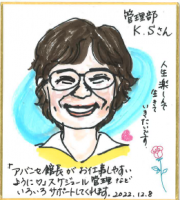 管理部
K.Sさん
人生楽しんで
生きて
いきたいです。
「アバンセ館長がお仕事しやすい
ようにスケジュール管理など
いろいろサポートしてくれます。
2022.12.8